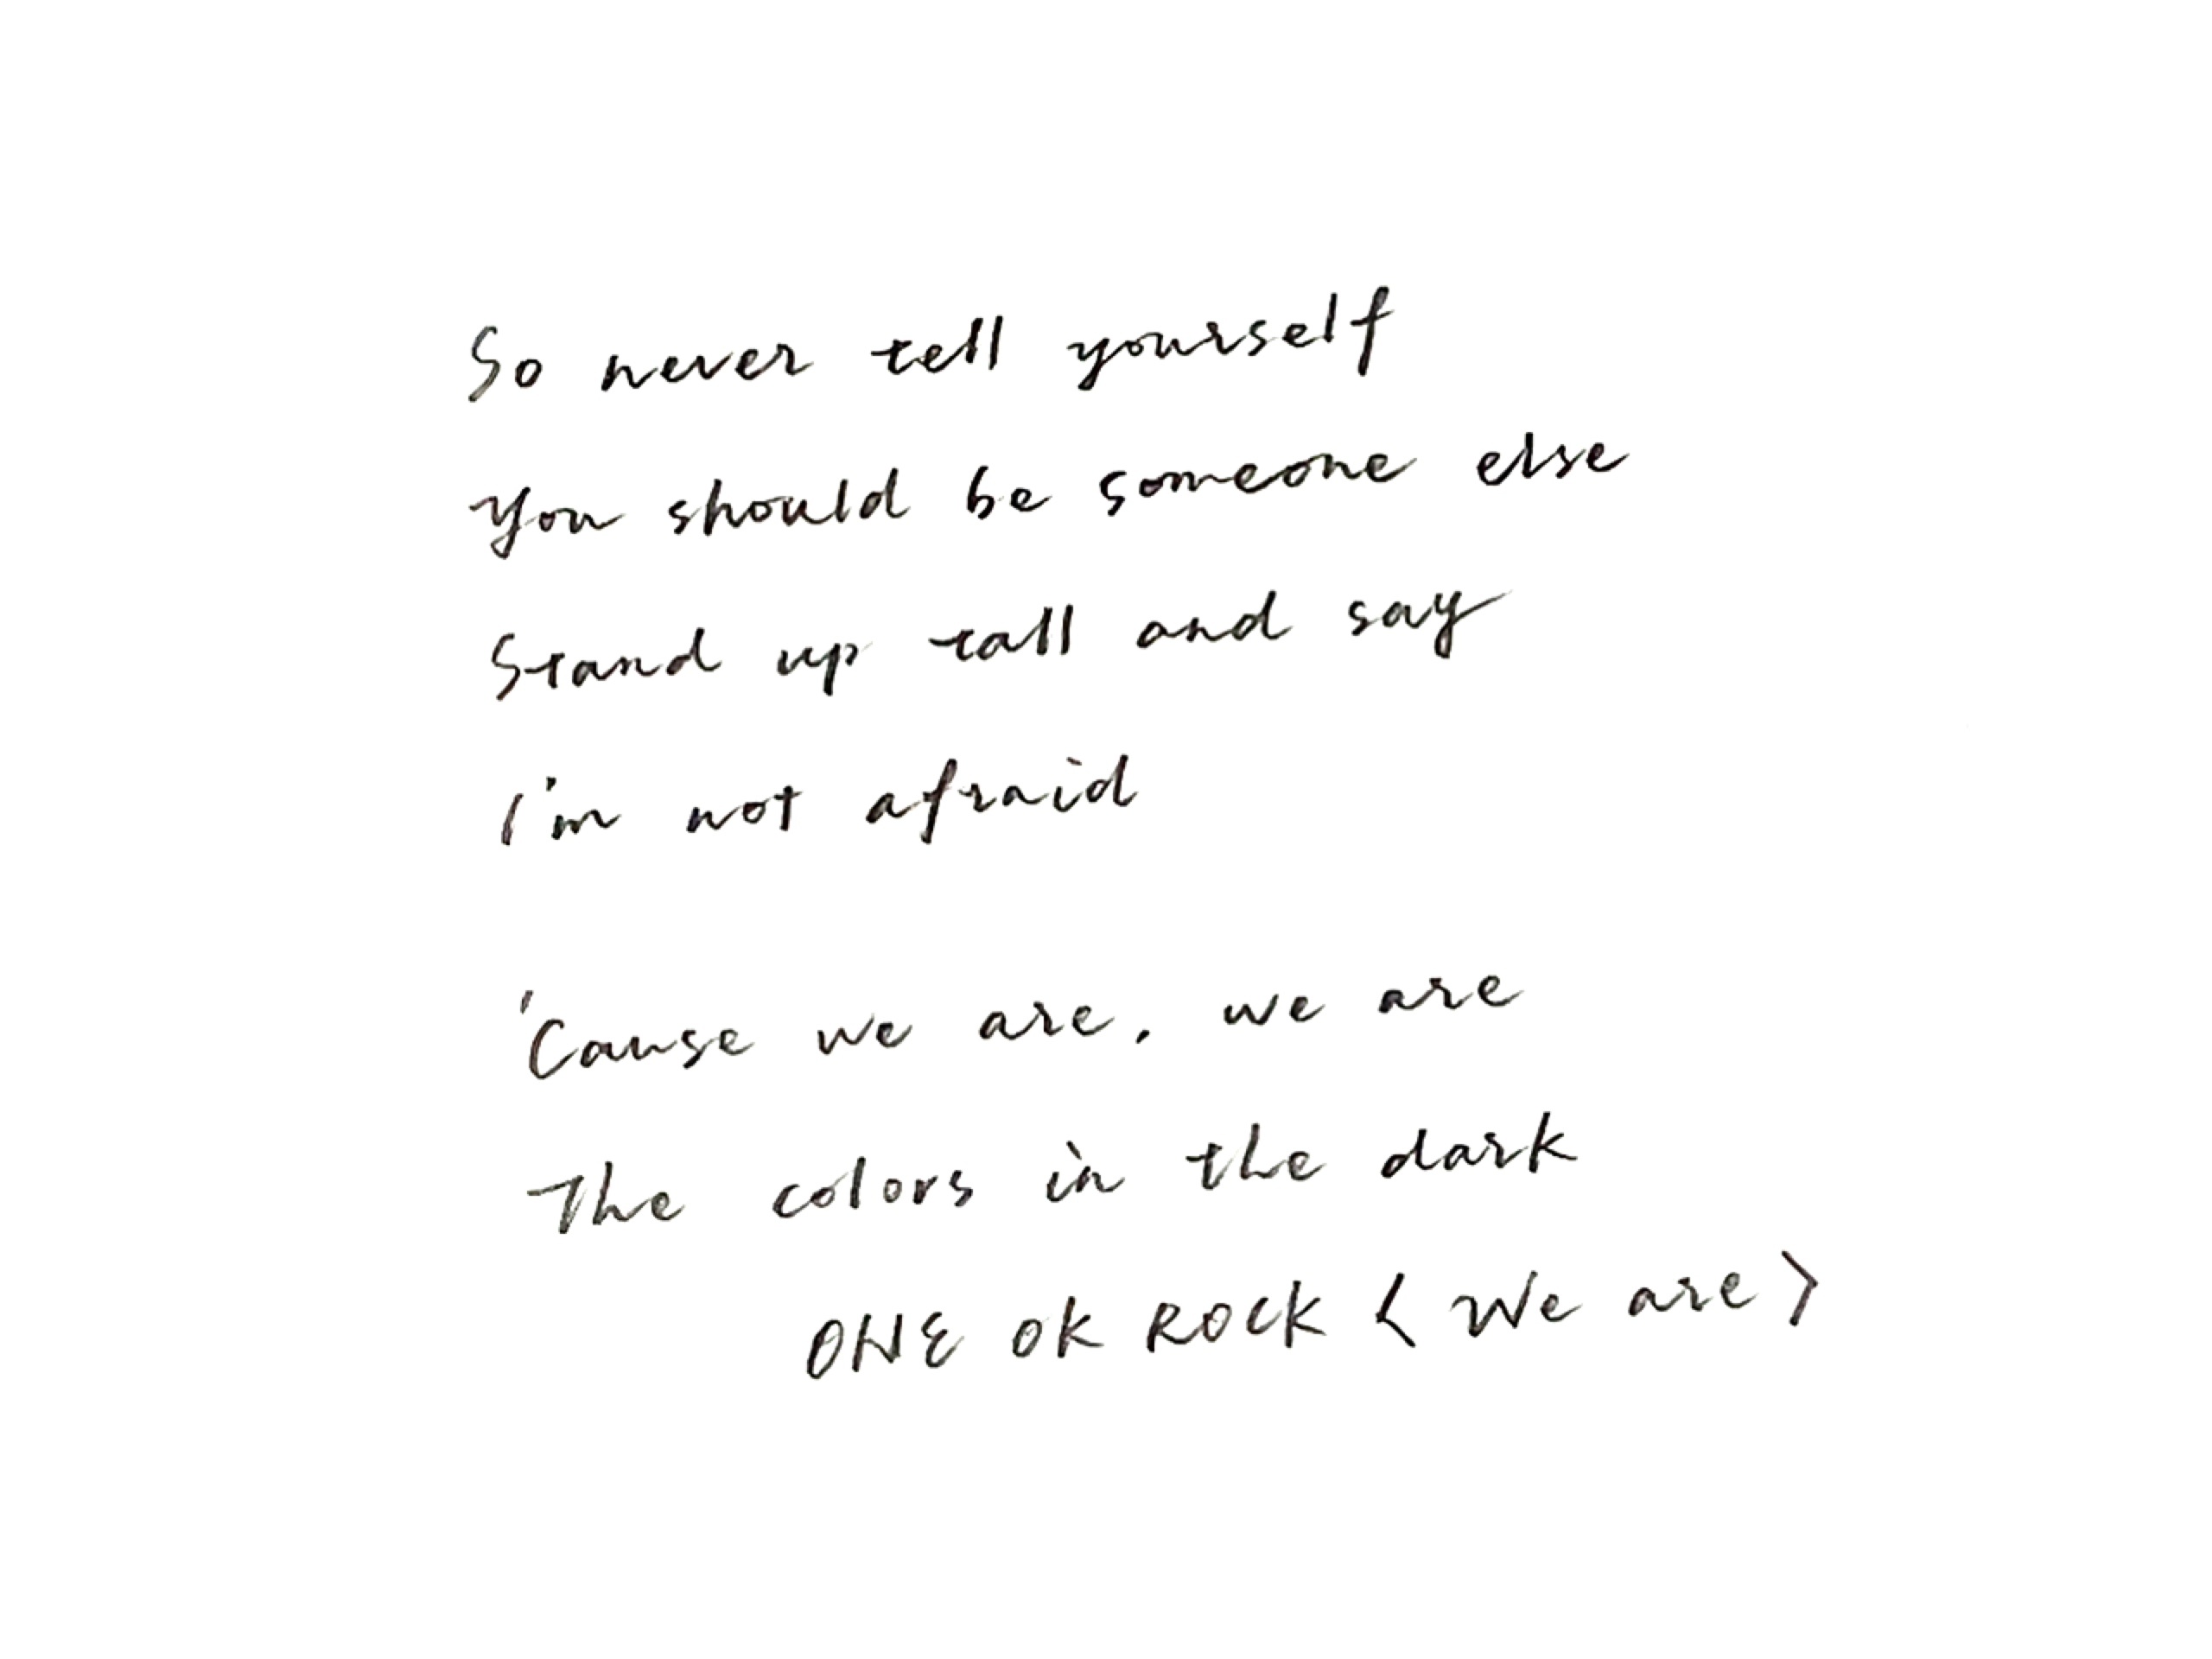 So never tell yourself
You should be someone else
Stand up tall and say
I'm not afraid
'Cause we are, we are
The colors in the dark
ONE OK ROCK 〈We are〉